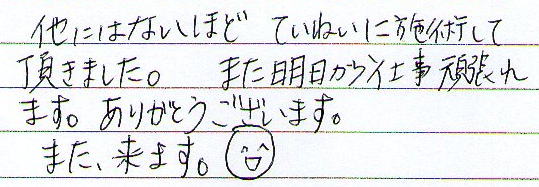 他にはないほど ていねいに施術して
頂きました。 また明日から仕事頑張れ
ます。ありがとうございます。
また、来ます。